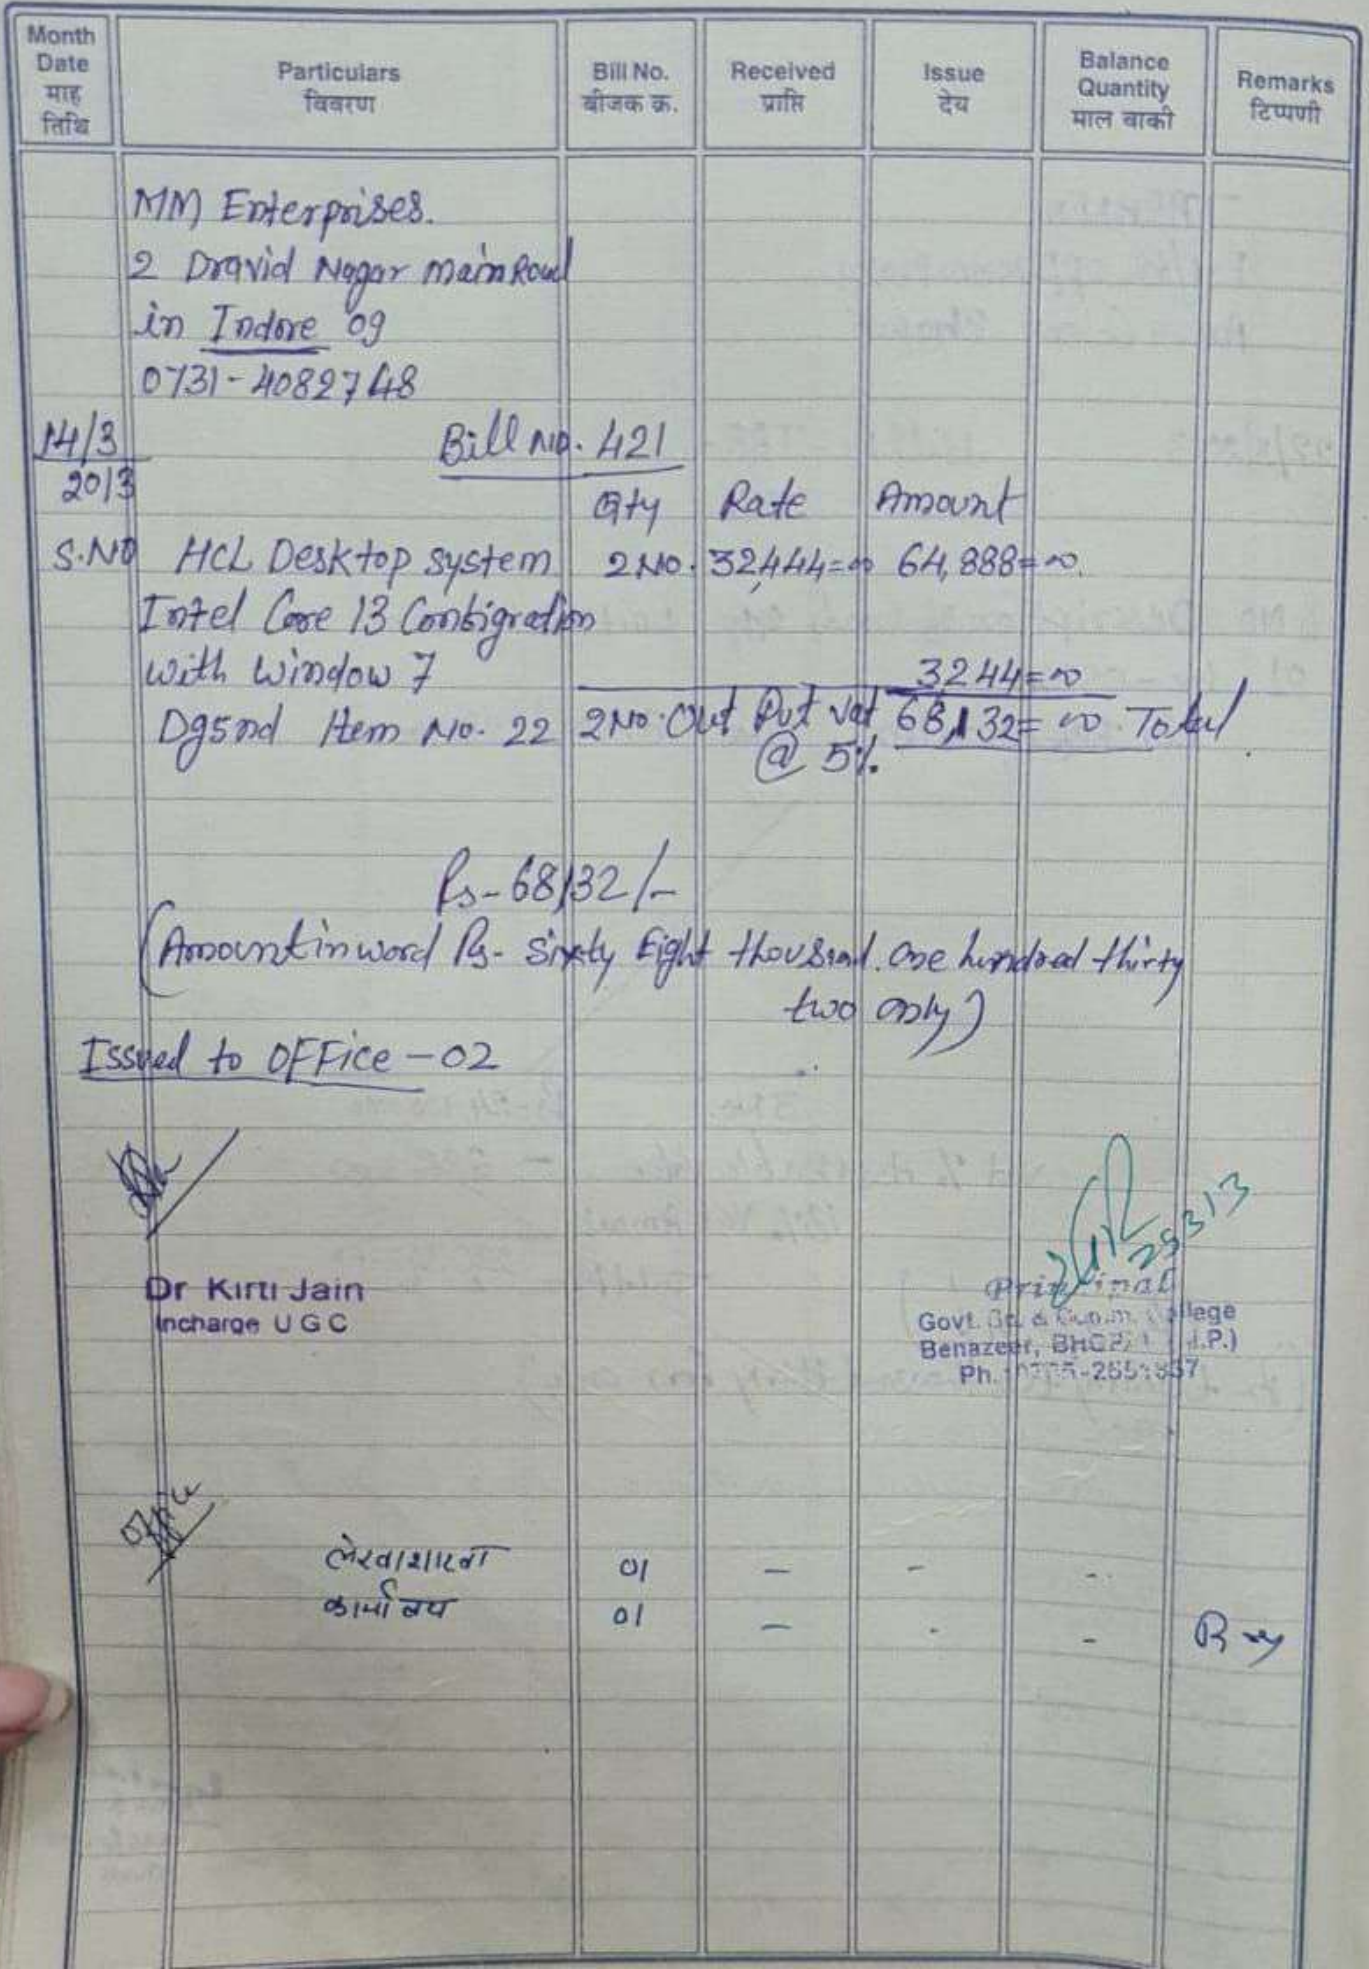 Month Date माह तिथि | Particulars विवरण | Bill No. बीजक क्र. | Received प्राप्ति | Issue देय | Balance Quantity माल बाकी | Remarks टिप्पणी
MM Enterprises.
2 Dravid Nagar main Road
in Indore 09
0731-4082748
14/3 Bill No. 421
2013
Qty Rate Amount
S.NO HCL Desktop system 2 No. 32,444=00 64,888=00
Intel Core 13 Configration
with window 7 3244=00
Dgsnd Item No. 22 2 No. Out Put vat 68,132=00 Total
@ 5%.
Rs-68132/-
(Amount in word Rs- Sixty Eight thousand. one hundred thirty
two only)
Issued to OFFice-02
Dr Kirti Jain
Incharge U G C
25313
Principal
Govt. & Comm. College
Benazeer, BHOPAL (M.P.)
Ph.
Office
लेखाशाखा 01 - - -
कार्यालय 01 - - -